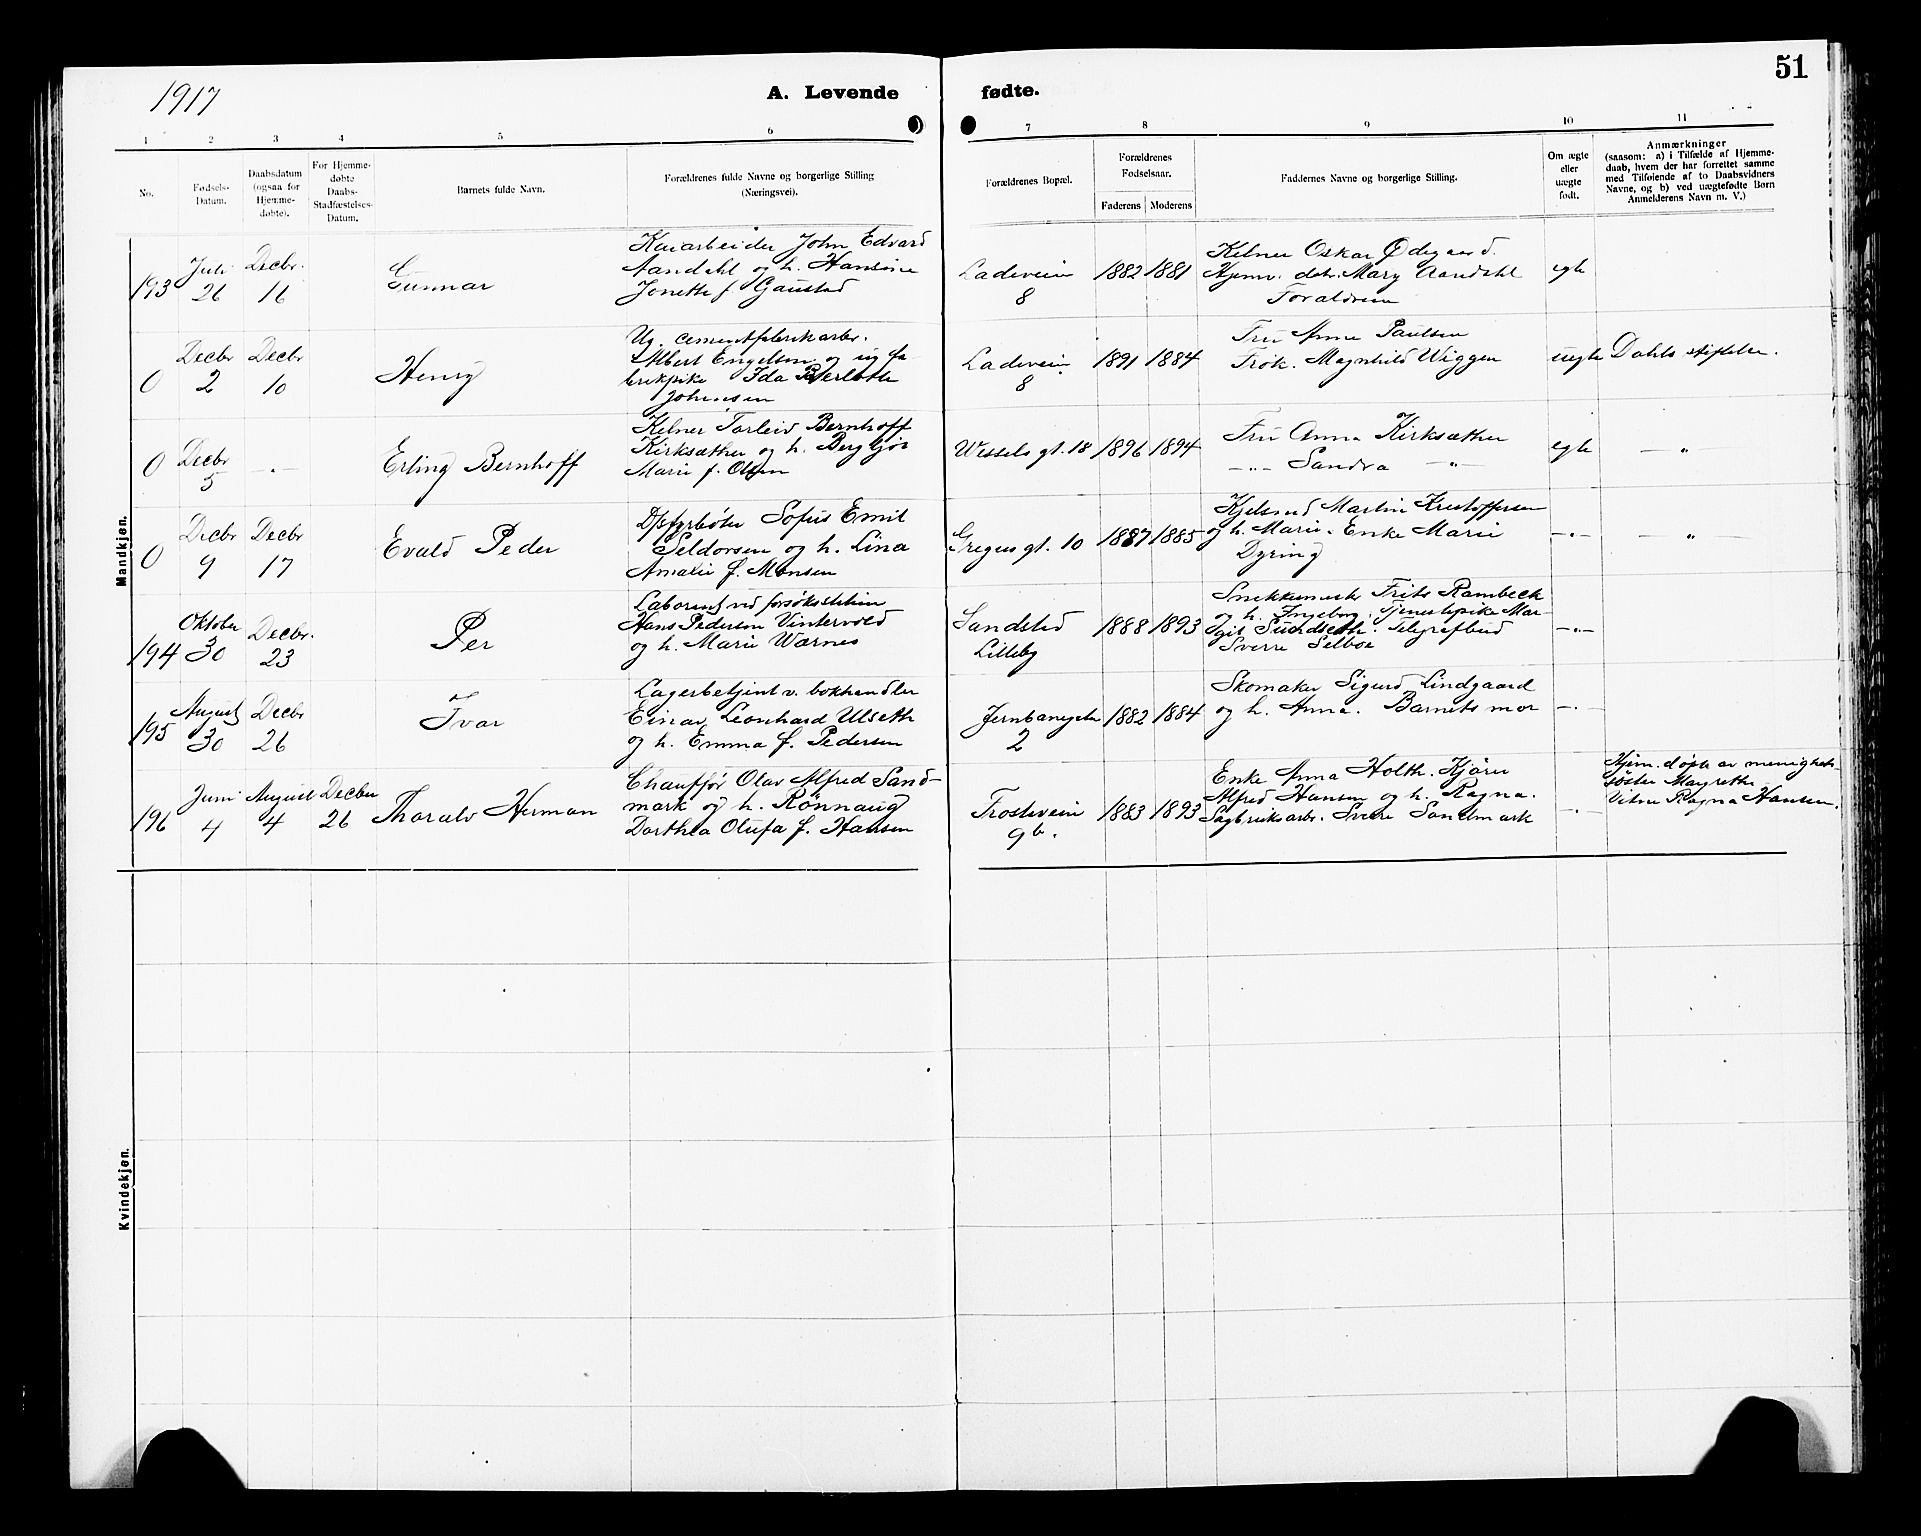 51
1917
A. Levende fødte.
1 2 3 4 5 6 7 8 9 10 11
No.
Fødsels-
Datum.
Daabsdatum
(ogsaa for
Hjemme-
døbte).
For Hjemme-
døbte
Daabs-
Stadfæstelses-
Datum.
Barnets fulde Navn.
Forældrenes fulde Navne og borgerlige Stilling
(Næringsvei).
Forældrenes Bopæl.
Forældrenes
Fødselsaar.
Faderens Moderens
Faddernes Navne og borgerlige Stilling.
Om ægte
eller
uægte
født.
Anmærkninger
(saasom: a) i Tilfælde af Hjemme-
daab, hvem der har forrettet samme
med Tilføiende af to Daabsvidners
Navne, og b) ved uægtefødte Børn
Anmelderens Navn m. V.)
Mandkjøn.
193
Juli
26
Decbr.
16
Gunnar
Kaiarbeider John Edvard
Aandahl og h. Hansine
Jonette f. Gaustad
Ladeveien
8
1882 1881
Kelner Oskar Ødegaard.
Hjemv. detr. Mary Aandahl
Foraldrene
egte
0
Decbr
2
Decbr
10
Henry
Ug. cementfabrikarbr.
Albert Engelsen og ug fa
brikpike Ida
Johansen
Ladeveien
8
1891 1884
Fru Anna Paulsen
Frøk. Magnhild Wiggen
uegte
Dahls stiftelse.
0
Decbr
5
-"-
Erling Bernhoff
Kelner Torleiv Bernhoff
Kirksæther og h. Bergljot
Marie f. Olsen
Wessels gt. 18
1896 1894
Fru Anna Kirksæther
-"- Sandra -"-
egte
-"-
0
Decbr
9
Decbr
17
Evald Peder
Dpsfyrbøter Sofus Emil
Seldorsen og h. Lina
Amalie f. Monsen
Gregus gt. 10
1887 1885
Kjelsmed Martin Kristoffersen
og h. Marie. Enke Marie
Dyring
-"-
-"-
194
Oktober
30
Decbr.
23
Per
Laborant ved forsøksstation
Hans Pedersen Vintervold
og h. Marie Warnes
Sandstad
Lilleby
1888 1893
Snekkermester Frits Rambeck
og h. Ingeborg. Tjenestepike Mar-
git Sundseth. Telegrafbud
Sverre Selboe
-"-
195
August
30
Decbr
26
Ivar
Lagerbetjent v. bokhandler
Einar Leonhard Ulseth
og h. Emma f. Pedersen
Jernbanegate
2
1882 1884
Skomaker Sigurd Lindgaard
og h. Anna. Barnets mor
-"-
196
Juni
4
August
4
Decbr
26
Thoralv Herman
Chauffør Olav Alfred Sand-
mark og h. Rønnaug
Dorthea Olufa f. Hansen
Trostevein
9b.
1883 1893
Enke Anna Holth. Kjører
Alfred Hansen og h. Ragna.
Sagbruksarbr. Sverre Sandmark
-"-
Hjem. døpt av menighets
søster Margrethe
Vitne Ragna Hansen.
Kvindekjøn.